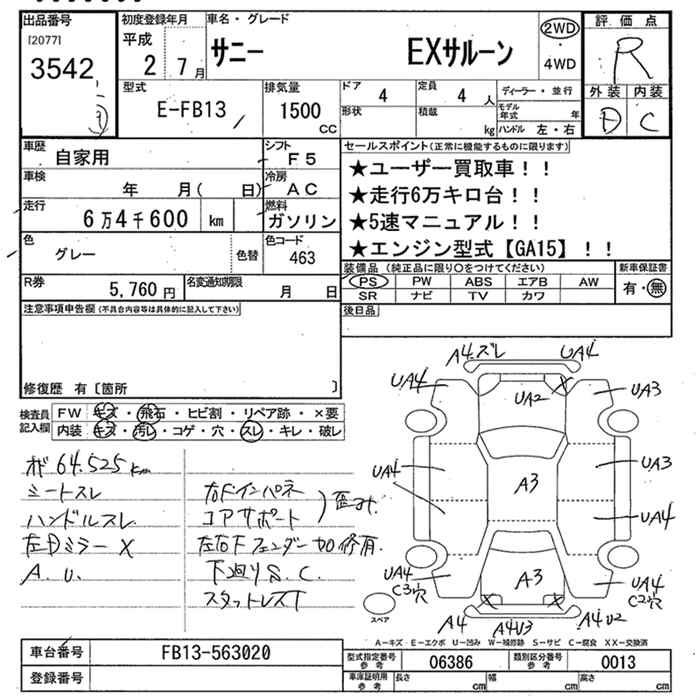 出品番号
[2077]
3542
初度登録年月
平成
2 7月
車名・グレード
サニー EXサルーン
2WD
・
4WD
評価点
R
外装 内装
D C
型式
E-FB13
排気量
1500
CC
ドア
4
定員
4 人
形状
積載
kg
ディーラー・並行
モデル年式 年
ハンドル 左・右
車歴
自家用
シフト
F5
車検
年 月( 日)
冷房
AC
走行
6万4千600 km
燃料
ガソリン
色
グレー
色替
色コード
463
R券
5,760 円
名変通知期限
月 日
セールスポイント(正常に機能するものに限ります)
★ユーザー買取車!!
★走行6万キロ台!!
★5速マニュアル!!
★エンジン型式【GA15】!!
装備品(純正品に限り○をつけてください)
PS PW ABS エアB AW
SR ナビ TV カワ
新車保証書
有・無
後日品
注意事項申告欄(不具合内容等は具体的に記入して下さい)
修復歴 有〔箇所 〕
検査員記入欄
FW キズ・飛石・ヒビ割・リペア跡・×要
内装 キズ・汚レ・コゲ・穴・スレ・キレ・破レ
64.525km
シートスレ
ハンドルスレ
左Dミラー X
A.U.
右Fインパネ
コアサポート
歪み
左右Fフェンダー 修有
下廻りS.C.
A4ズレ UA4
UA4 UA2 X UA3
UA4 A3 UA3
UA4
UA4 C3穴 A3 UA4 C2穴
X X
A4 A4U3 A4U2
スペア
A-キズ E-エクボ U-凹み W-補修跡 S-サビ C-腐食 XX-交換済
車台番号 FB13-563020
登録番号
型式指定番号 参考 06386
類別区分番号 参考 0013
車庫証明用 参考 長さ cm 幅 cm 高さ cm